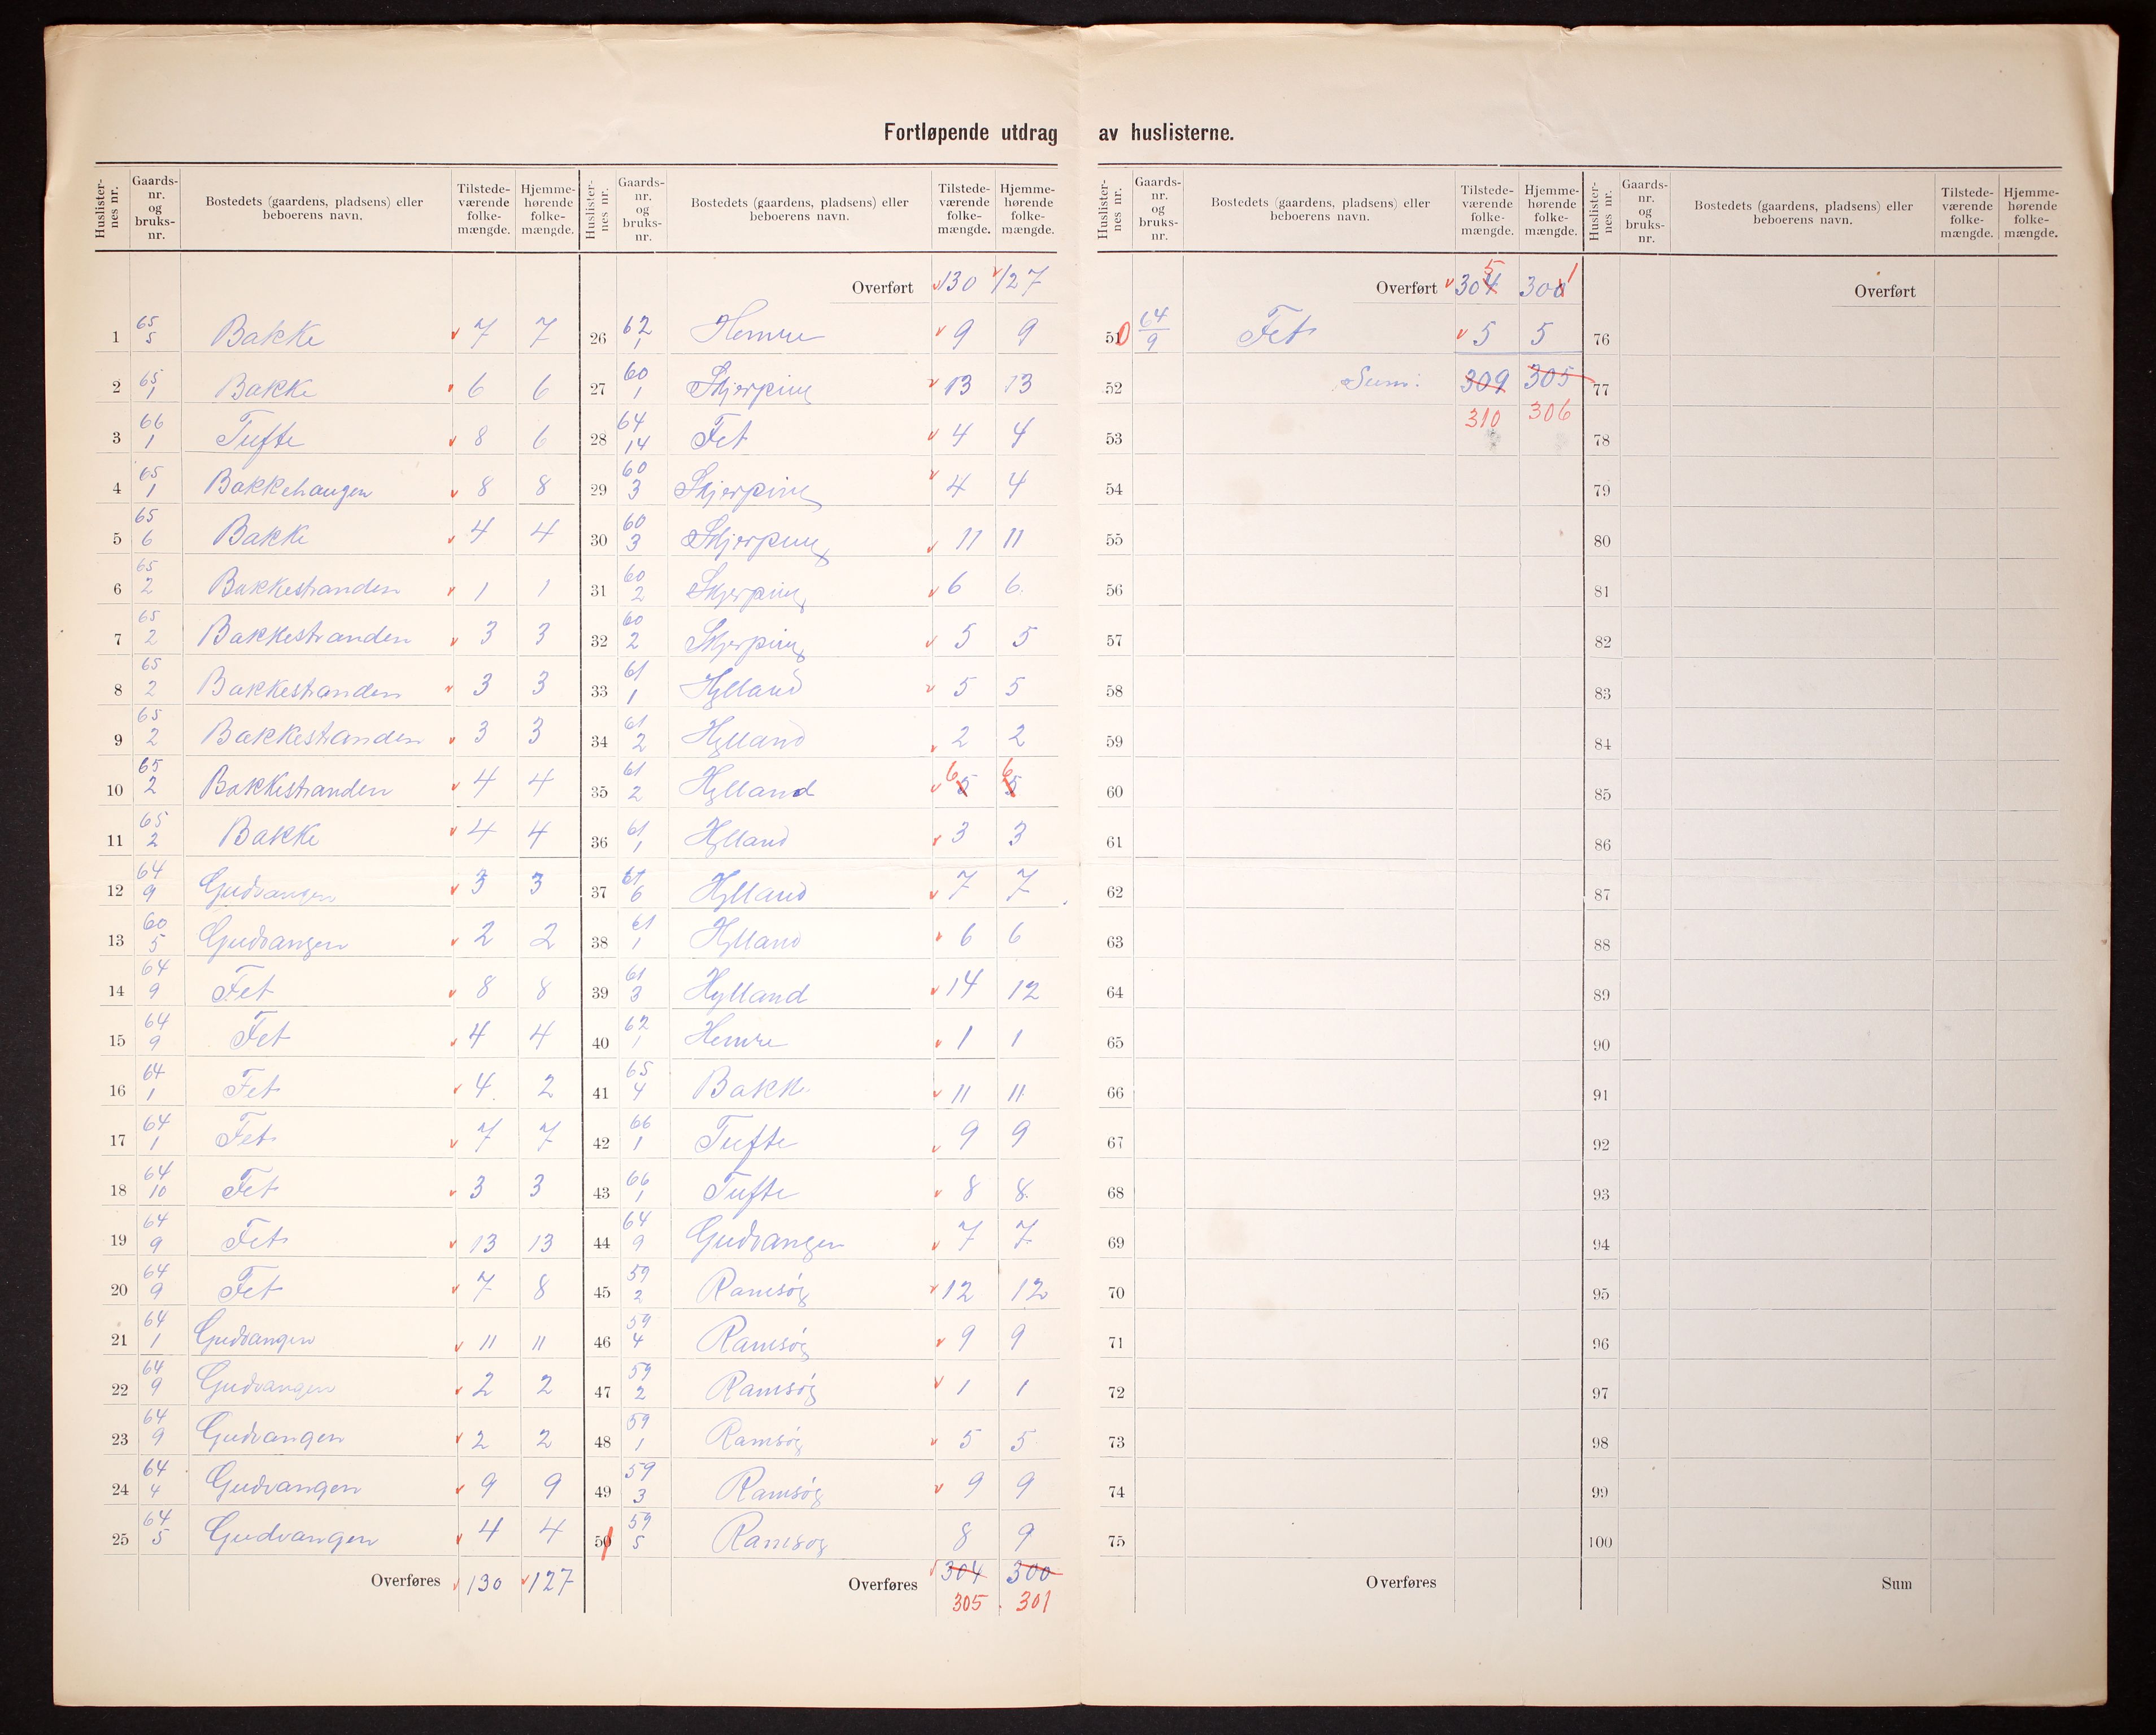 Fortløpende utdrag av huslisterne.
Huslisternes nr. | Gaardsnr. og bruksnr. | Bostedets (gaardens, pladsens) eller beboerens navn. | Tilstedeværende folkemængde. | Hjemmehørende folkemængde.
1 65/5 Bakke 7 7
2 65/1 Bakke 6 6
3 66/1 Tufte 8 6
4 65/1 Bakkehaugen 8 8
5 65/6 Bakke 4 4
6 65/2 Bakkestranden 1 1
7 65/2 Bakkestranden 3 3
8 65/2 Bakkestranden 3 3
9 65/2 Bakkestranden 3 3
10 65/2 Bakkestranden 4 4
11 65/2 Bakke 4 4
12 64/9 Gudvangen 3 3
13 60/5 Gudvangen 2 2
14 64/9 Fet 8 8
15 64/9 Fet 4 4
16 64/1 Fet 4 2
17 64/1 Fet 7 7
18 64/10 Fet 3 3
19 64/9 Fet 13 13
20 64/9 Fet 7 8
21 64/1 Gudvangen 11 11
22 64/9 Gudvangen 2 2
23 64/9 Gudvangen 2 2
24 64/4 Gudvangen 9 9
25 64/5 Gudvangen 4 4
Overføres 130 127
Huslisternes nr. | Gaardsnr. og bruksnr. | Bostedets (gaardens, pladsens) eller beboerens navn. | Tilstedeværende folkemængde. | Hjemmehørende folkemængde.
Overført 130 127
26 62/1 Hemre 9 9
27 60/1 Skjerping 13 13
28 64/14 Fet 4 4
29 60/3 Skjerping 4 4
30 60/3 Skjerping 11 11
31 60/2 Skjerping 6 6
32 60/2 Skjerping 5 5
33 61/1 Hylland 5 5
34 61/2 Hylland 2 2
35 61/2 Hylland 5 6 5 6
36 61/1 Hylland 3 3
37 61/6 Hylland 7 7
38 61/1 Hylland 6 6
39 61/3 Hylland 14 12
40 62/1 Hemre 1 1
41 65/4 Bakke 11 11
42 66/1 Tufte 9 9
43 66/1 Tufte 8 8
44 64/9 Gudvangen 7 7
45 59/2 Ramsøy 12 12
46 59/4 Ramsøy 9 9
47 59/2 Ramsøy 1 1
48 59/1 Ramsøy 5 5
49 59/3 Ramsøy 9 9
50 59/5 Ramsoy 8 9
Overføres 304 300
305 301
Huslisternes nr. | Gaardsnr. og bruksnr. | Bostedets (gaardens, pladsens) eller beboerens navn. | Tilstedeværende folkemængde. | Hjemmehørende folkemængde.
Overført 304 5 300 1
51 0 64/9 Fet 5 5
52 Sum: 309 305
310 306
53
54
55
56
57
58
59
60
61
62
63
64
65
66
67
68
69
70
71
72
73
74
75
Overføres
Huslisternes nr. | Gaardsnr. og bruksnr. | Bostedets (gaardens, pladsens) eller beboerens navn. | Tilstedeværende folkemængde. | Hjemmehørende folkemængde.
Overført
76
77
78
79
80
81
82
83
84
85
86
87
88
89
90
91
92
93
94
95
96
97
98
99
100
Sum